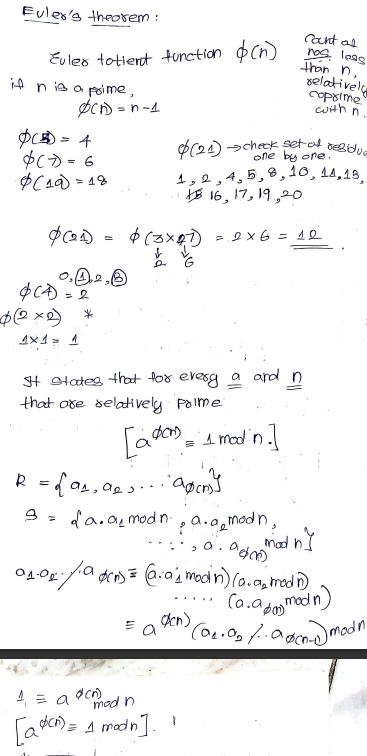 Euler's theorem :
Euler totient function ϕ(n)
Count of
nos. less
than n,
relatively
coprime
with n.
if n is a prime,
ϕ(n) = n-1
ϕ(5) = 4
ϕ(7) = 6
ϕ(19) = 18
ϕ(21) → check set of residue
one by one.
1, 2, 4, 5, 8, 10, 11, 13,
16, 17, 19, 20
ϕ(21) = ϕ(3×7) = 2 × 6 = 12
↓ ↓
2 6
0, 1, 2, 3
ϕ(4) = 2
ϕ(2 × 2) *
1×1 = 1
It states that for every a and n
that are relatively prime
[a^ϕ(n) ≡ 1 mod n.]
R = {a1, a2, ... aϕ(n)}
S = {a.a1 mod n, a.a2 mod n,
....., a.aϕ(n) mod n}
a1.a2. /. aϕ(n) ≡ (a.a1 mod n)(a.a2 mod n)
..... (a.aϕ(n) mod n)
≡ a^ϕ(n) (a1.a2 /.. aϕ(n-1)) mod n
1 ≡ a^ϕ(n) mod n
[a^ϕ(n) ≡ 1 mod n].